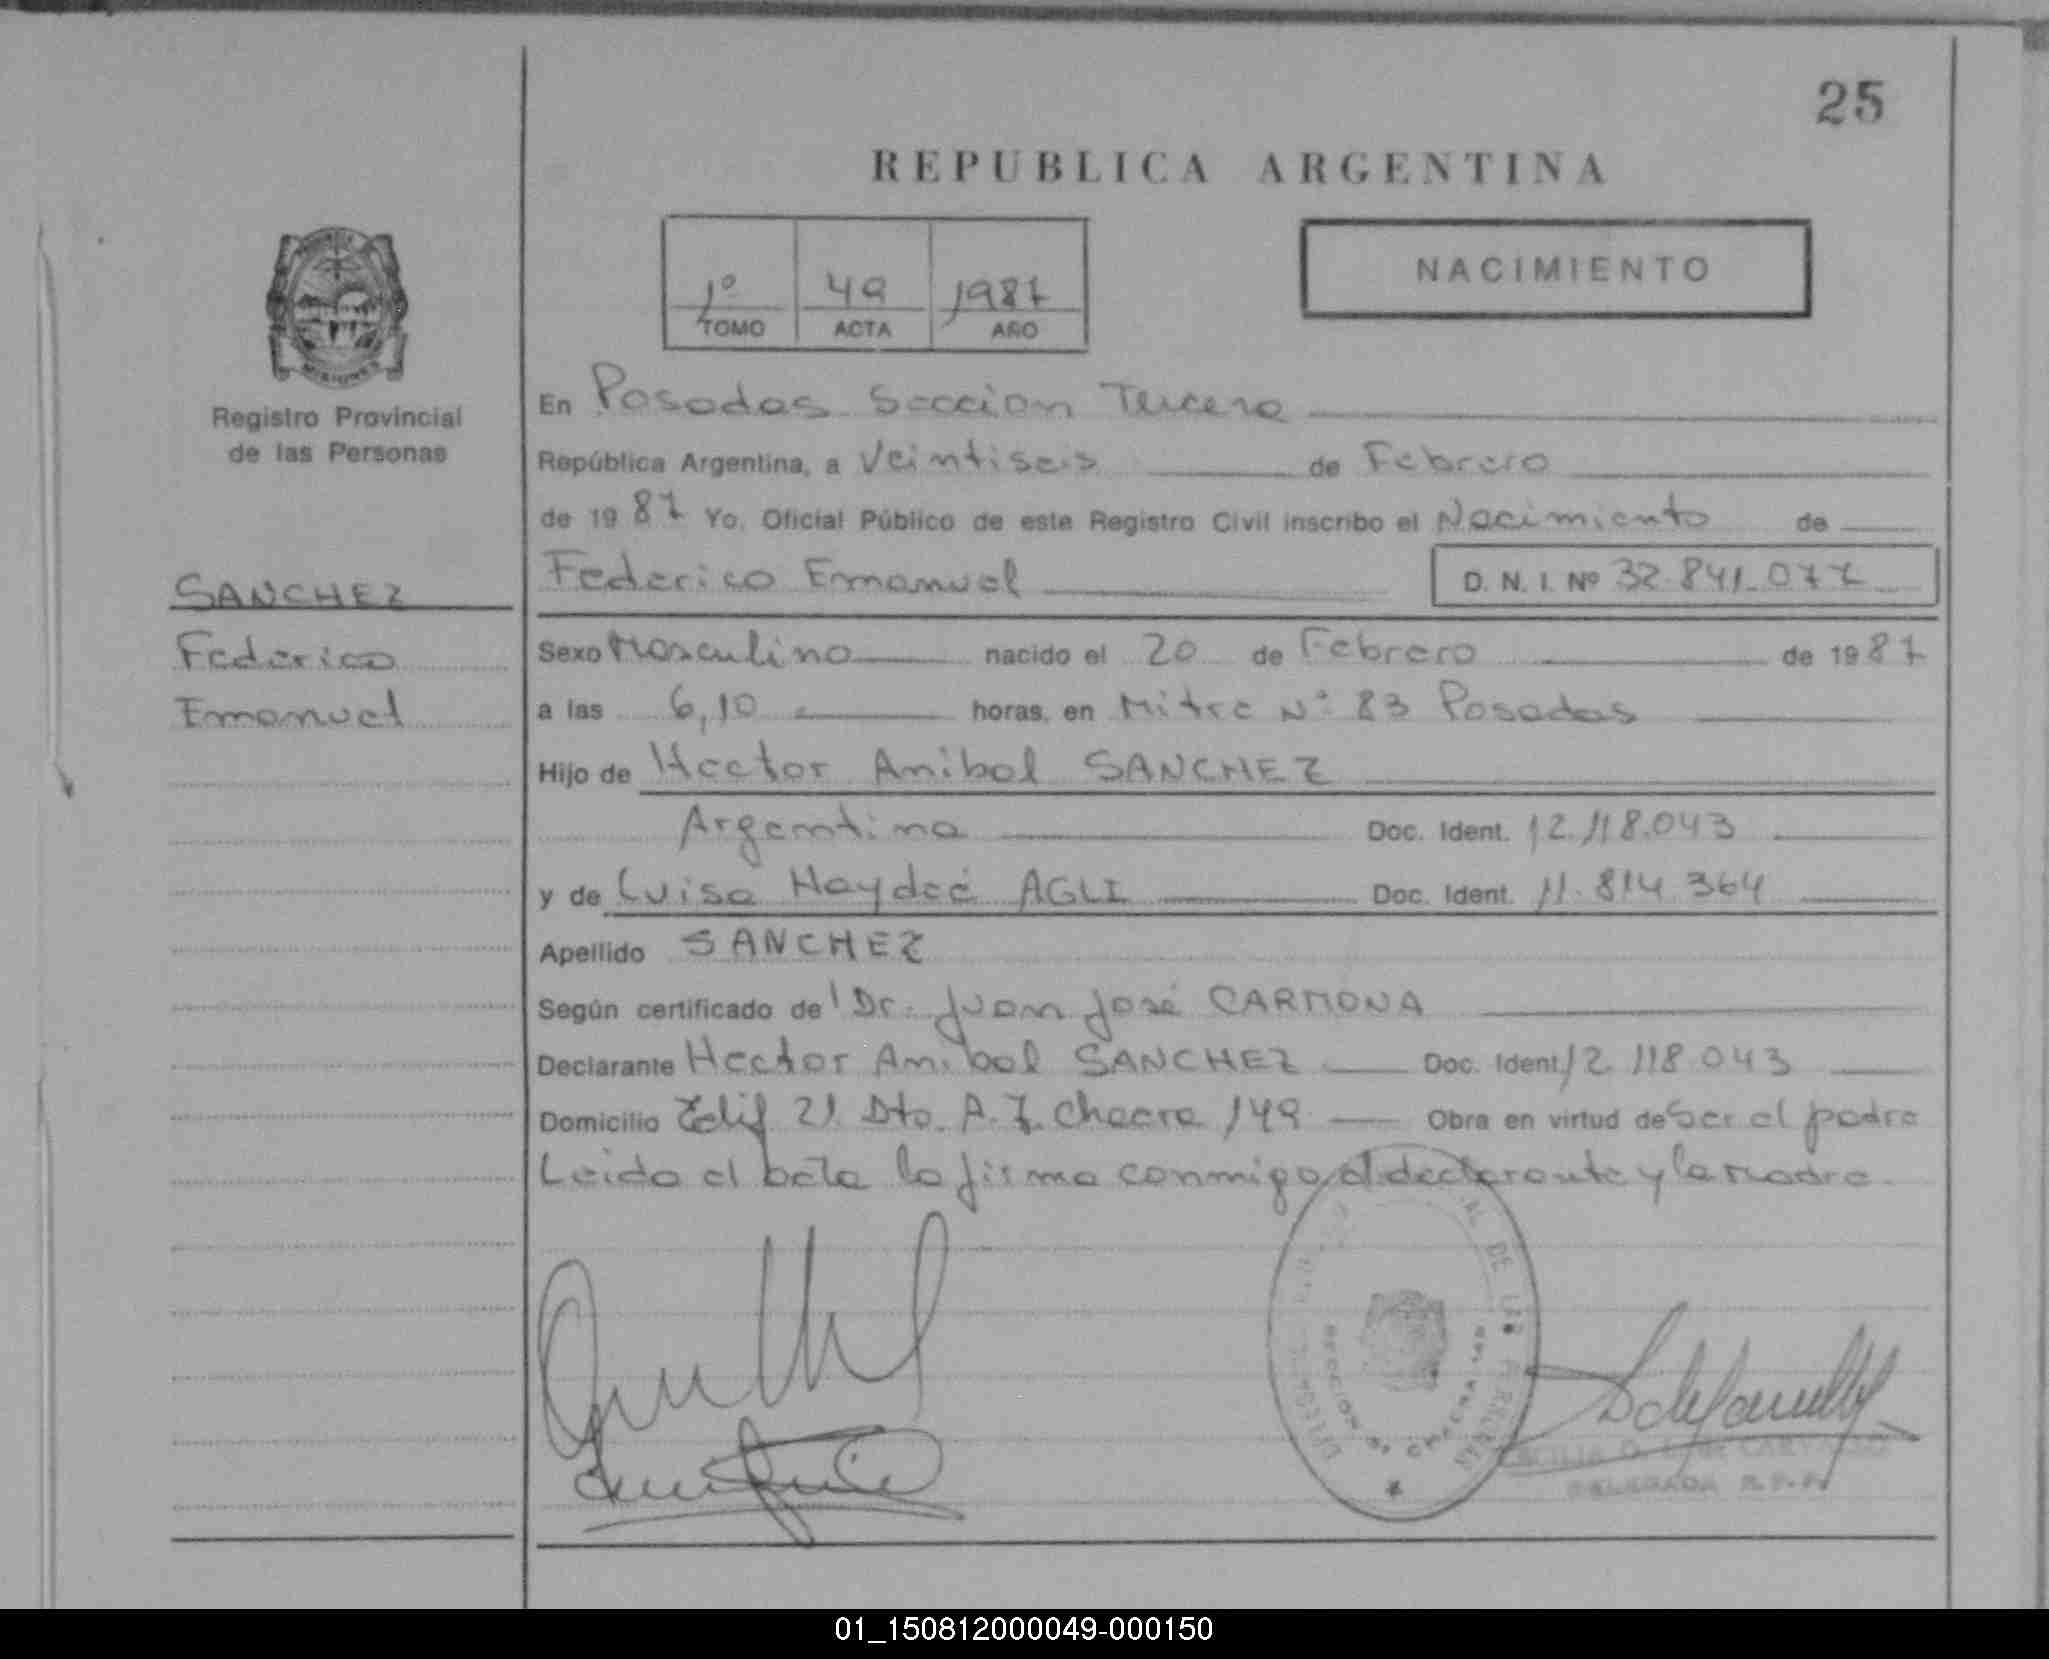 25
REPUBLICA ARGENTINA
1º 49 1987
TOMO ACTA AÑO
NACIMIENTO
Registro Provincial
de las Personas
SANCHEZ
Federico
Emanuel
En Posadas Seccion Tercera
República Argentina, a Veintiseis de Febrero
de 1987 Yo, Oficial Público de este Registro Civil inscribo el Nacimiento de
Federico Emanuel D. N. I. Nº 32.841.077
Sexo Masculino nacido el 20 de Febrero de 1987
a las 6,10 horas, en Mitre Nº 83 Posadas
Hijo de Hector Anibal SANCHEZ
Argentino Doc. Ident. 12.118.043
y de Luisa Haydeé AGLI Doc. Ident. 11.814.364
Apellido SANCHEZ
Según certificado de Dr. Juan José CARMONA
Declarante Hector Anibal SANCHEZ Doc. Ident. 12.118.043
Domicilio Edif 21 Dto. A. Chacra 149 Obra en virtud de Ser el padre
Leida el acta la firma conmigo el declarante y la madre.
AL DE LAS PERSONAS
SECCION 3ª CHACRA 149
CARVALLO
DELEGADA R.P.P.
01_150812000049-000150